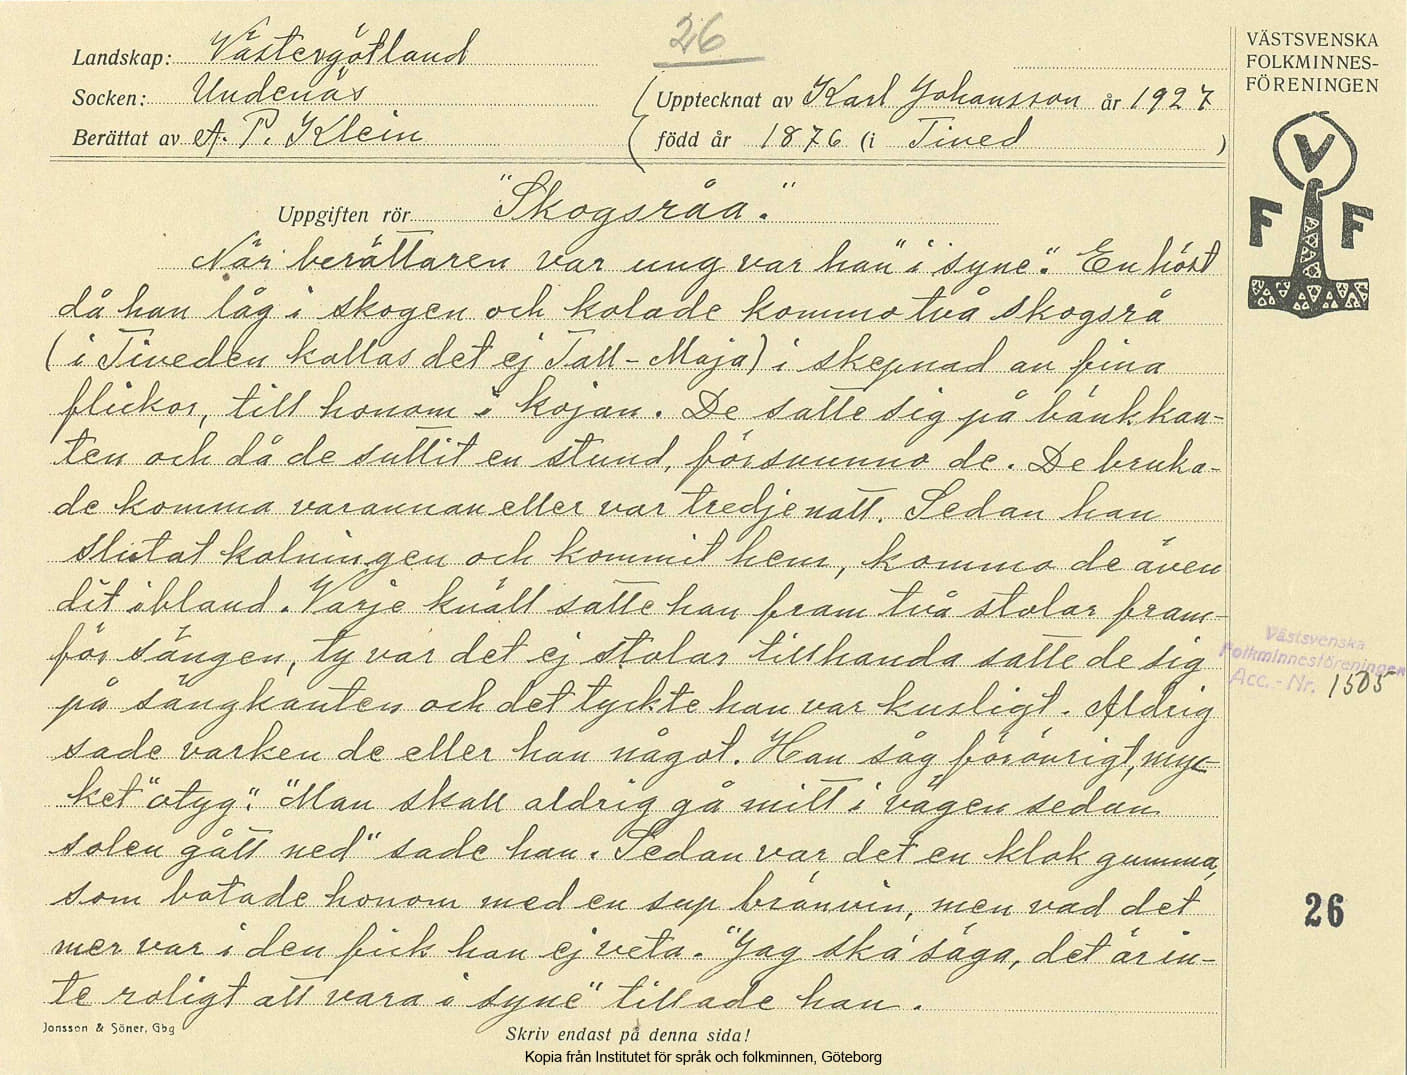 26
Landskap: Västergötland
Socken: Undenäs
Berättat av A. P. Klein
Upptecknat av Karl Johansson år 1927
född år 1876 (i Tived )
VÄSTSVENSKA
FOLKMINNES-
FÖRENINGEN
V
F F
Uppgiften rör "Skogsråa."
När berättaren var ung var han "i syne". En höst
då han låg i skogen och kolade kommo två skogsrå
(i Tiveden kallas det ej Tall-Maja) i skepnad av fina
flickor, till honom i kojan. De satte sig på bänkkan-
ten och då de suttit en stund, försvunno de. De bruka-
de komma varannan eller var tredje natt. Sedan han
slutat kolningen och kommit hem, kommo de även
dit ibland. Varje kväll satte han fram två stolar fram-
för sängen, ty var det ej stolar tillhanda satte de sig
på sängkanten och det tyckte han var kusligt. Aldrig
sade varken de eller han något. Han såg förövrigt, myc-
ket "otyg". "Man skall aldrig gå mitt i vägen sedan
solen gått ned" sade han. Sedan var det en klok gumma,
som botade honom med en sup bränvin, men vad det
mer var i den fick han ej veta. "Jag ska' säga, det är in-
te roligt att vara i syne" tillade han.
Västsvenska
Folkminnesföreningen
Acc.-Nr. 1505
26
Jonsson & Söner, Gbg
Skriv endast på denna sida!
Kopia från Institutet för språk och folkminnen, Göteborg